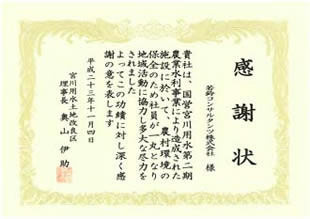 感謝状
若鈴コンサルタンツ株式会社 様
貴社は、国営宮川用水第二期
農業水利事業により造成された
施設に於いて、農村環境の
保全のため社員が一丸となり
地域活動に協力し多大な尽力を
されました
よってこの功績に対し深く感
謝の意を表します
平成二十三年十一月四日
宮川用水土地改良区
理事長 奥山 伊助